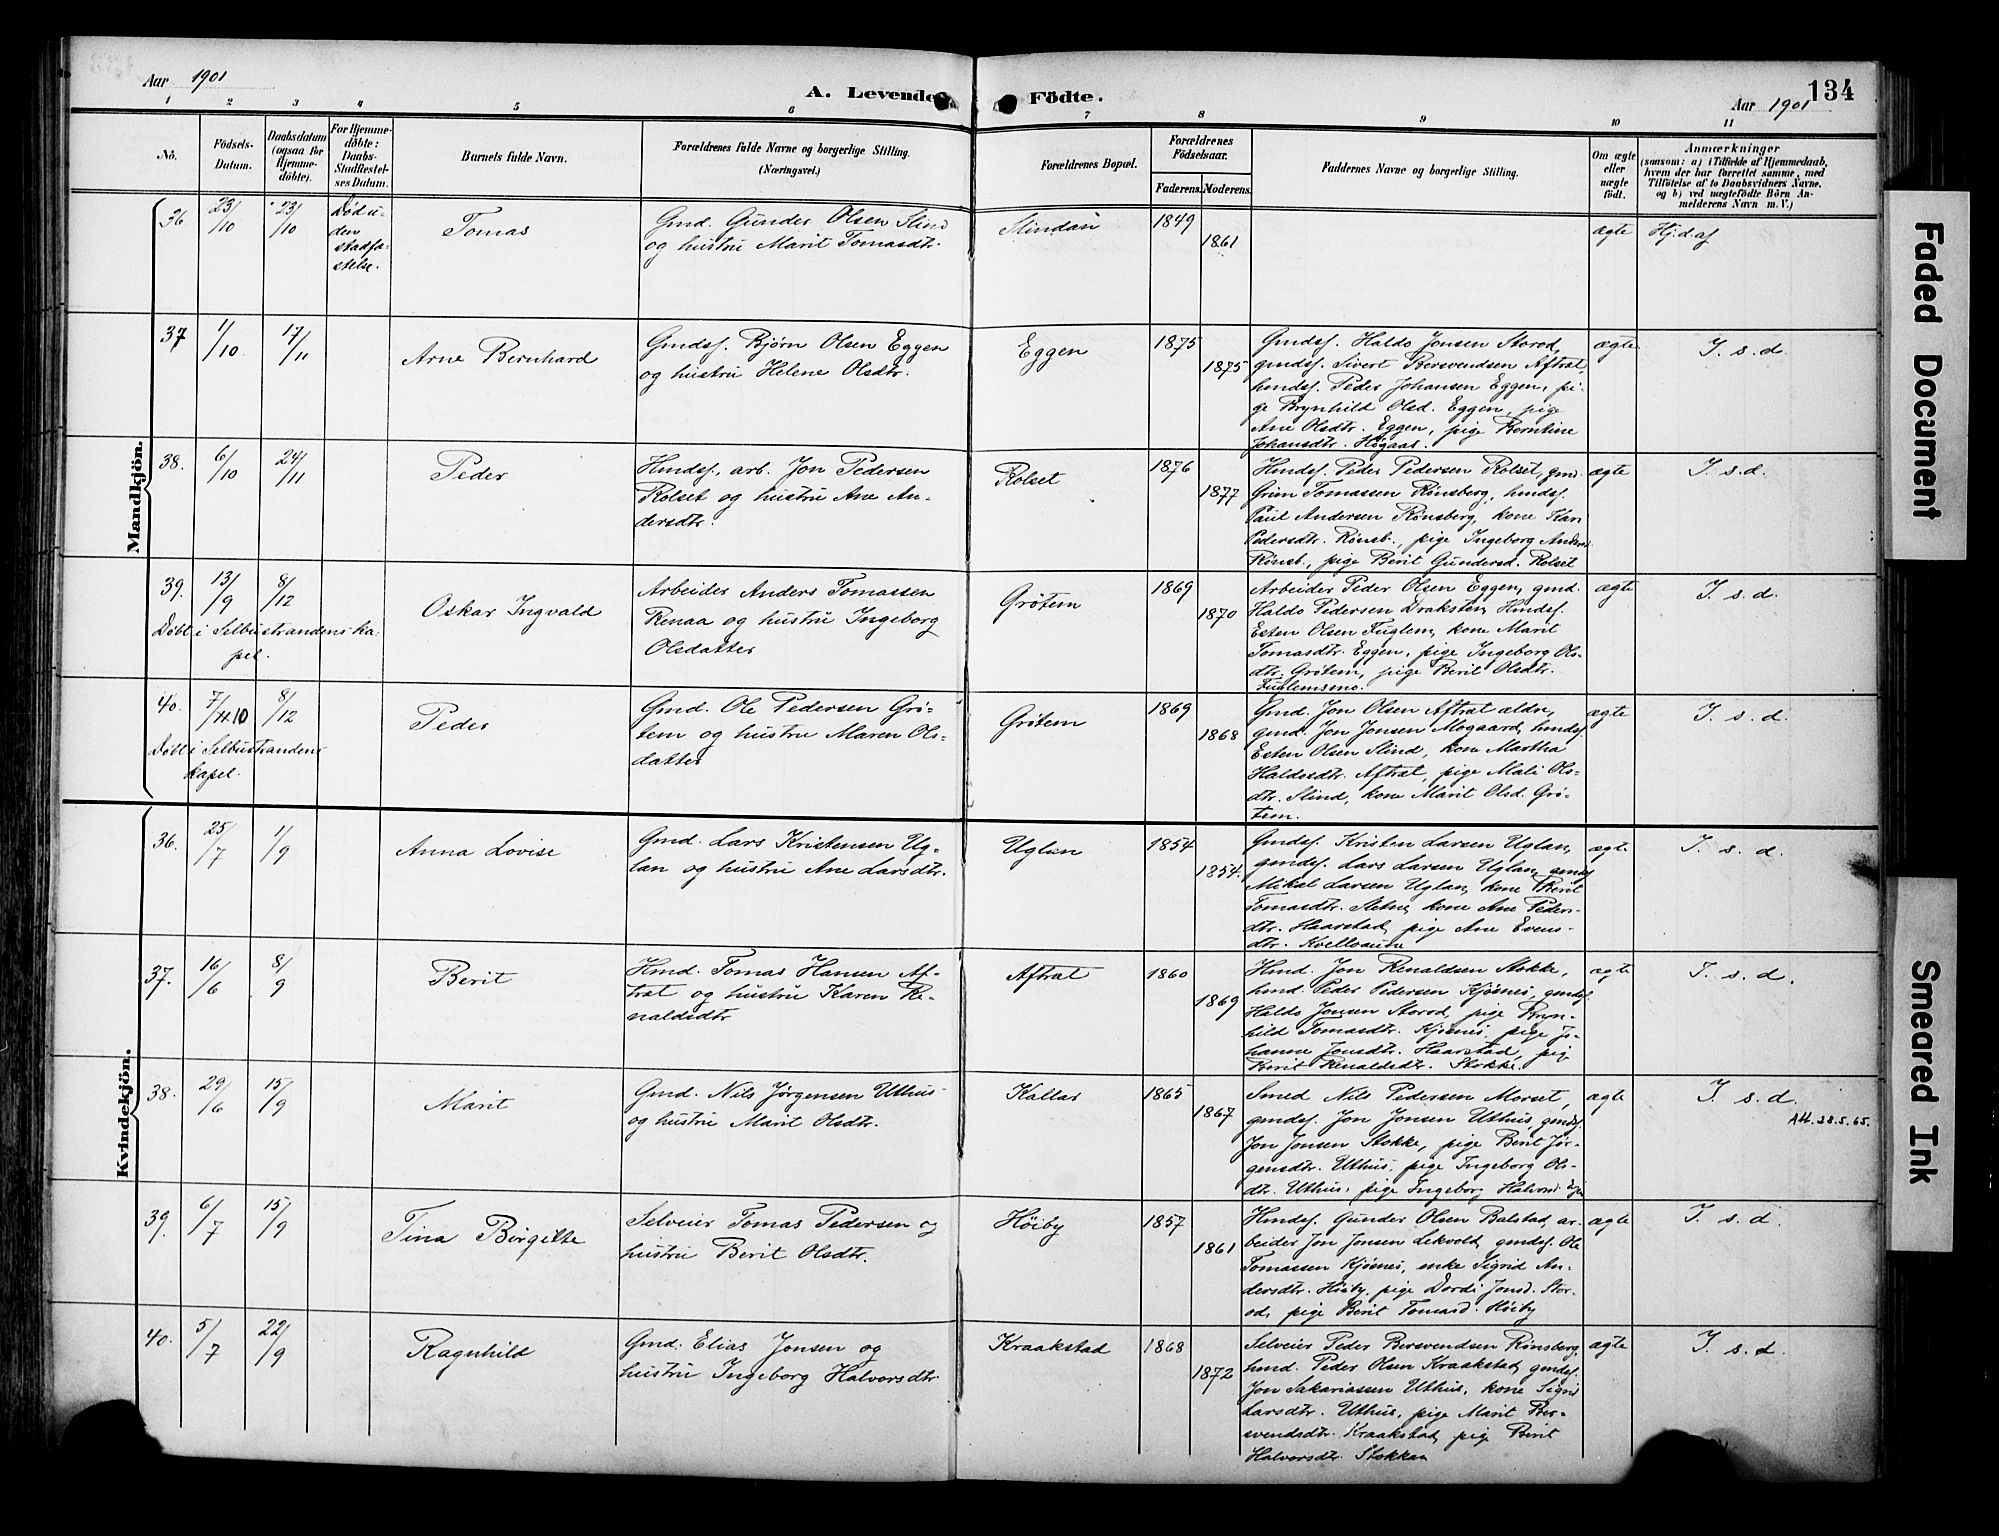 Aar 1901
A. Levende Födte.
134
Aar 1901
1 2 3 4 5 6 7 8 9 10 11
No.
Födsels-
Datum.
Daabsdatum
(ogsaa for
Hjemme-
döbte).
For Hjemme-
döbte:
Daabs-
Stadfestel-
ses Datum.
Barnets fulde Navn.
Forældrenes fulde Navne og borgerlige Stilling.
(Næringsvei.)
Forældrenes Bopæl.
Forældrenes
Födselsaar.
Faderens. Moderens.
Faddernes Navne og borgerlige Stilling.
Om ægte
eller
uægte
födt.
Anmærkninger
(saasom: a) i Tilfælde af Hjemmedaab,
hvem der har forrettet samme, med
Tilföielse af to Daabsvidners Navne.
og b) ved uægtefödte Börn An-
melderens Navn m. V.)
Mandkjön.
36. 23/10 23/10
Död u-
den
stadfæ-
stelse.
Tomas
Gmd. Gunder Olsen Slind
og hustru Marit Tomasdtr.
Slindan
1849
1861
ægte
Hj. d. af
37 1/10 17/11
Arne Bernhard
Gmdsf. Bjørn Olsen Eggen
og hustru Helene Olsdtr.
Eggen
1875
1875
Gmdsf. Haldo Jonsen Storød,
gmdsf. Sivert Bersvendsen Aftrøt
hmdsf. Peder Johansen Eggen, pi-
ge Brynhild Olsd. Eggen, pige
Ane Olsdtr. Eggen, pige Berntine
Johansdtr. Høgaas.
ægte
I. s. d.
38. 6/10 24/11
Peder
Hmdsf. arb. Jon Pedersen
Rolset og hustru Ane An-
dersdtr.
Rolset
1876
1877
Hmdsf. Peder Pedersen Rolset, gmd.
Grim Tomassen Rønsberg, hmdsf.
Paul Andersen Rønsberg, kone Kari
Pedersdtr. Rønsb., pige Ingeborg Anders.
Rønsb., pige Berit Gundersd. Rolset
ægte
I. s. d.
39. 13/9 8/12
Døbt i Selbustrandens ka-
pel.
Oskar Ingvald
Arbeider Anders Tomassen
Renaa og hustru Ingeborg
Olsdatter
Grøtem
1869
1870
Arbeider Peder Olsen Eggen, gmd.
Haldo Pedersen Draksten, Hmdsf.
Esten Olsen Fuglem, kone Marit
Tomasdtr. Eggen, pige Ingeborg Ols-
dtr. Grøtem, pige Berit Olsdtr.
Fuglemsmo.
ægte
I. s. d.
40. 7/10 8/12
Døbt i Selbustrandens
kapel.
Peder
Gmd. Ole Pedersen Grø-
tem og hustru Maren Ols-
datter
Grøtem
1869
1868
Gmd. Jon Olsen Aftrøt ældre,
gmd. Jon Jonsen Mogaard, hmdsf.
Esten Olsen Slind, kone Martha
Haldosdtr. Aftrøt, pige Mali Ols-
dtr. Slind, kone Marit Olsd. Grø-
tem.
ægte
I. s. d.
Kvindekjön.
36. 25/7 1/9
Anna Lovise
Gmd. Lars Kristensen Ug-
lan og hustru Ane Larsdtr.
Uglan
1854
1854.
Gmdsf. Kristen Larsen Uglan,
gmdsf. Lars Larsen Uglan, gmdsf.
Mikal Larsen Uglan, kone Berit
Tomasdtr. Setne, kone Ane Peders-
dtr. Haarstad, pige Ane Evens-
dtr.
ægte
I. s. d.
37. 16/6 8/9
Berit
Hmd. Tomas Hansen Af-
trøt og hustru Karen Re-
naldsdtr
Aftrøt
1860
1869
Hmd. Jon Renaldsen Stokke,
hmd. Peder Pedersen Kjøsnes, gmdsf.
Haldo Jonsen Storød, pige Bryn-
hild Tomasdtr. Kjøsnes, pige Jo-
hanne Jonsdtr. Haarstad, pig
Berit Renaldsdtr. Stokke.
ægte
I. s. d.
38. 29/6 15/9
Marit
Gmd. Nils Jørgensen Uthus
og hustru Marit Olsdtr.
Kallar
1865
1867
Smed Nils Pedersen Morset,
gmdsf. Jon Jonsen Uthus, gmdsf.
Jon Jonsen Stokke, pige Berit Jør-
gensdtr. Uthus, pige Ingeborg Ols-
dtr. Uthus, pige Ingeborg Halvorsd.
ægte
I. s. d.
Att. 28.5.65.
39. 6/7 15/9
Tina Birgitte
Selveier Tomas Pedersen og
hustru Berit Olsdtr.
Höiby
1857
1861
Hmdsf. Gunder Olsen Balstad, ar-
beider Jon Jonsen Lekvold, gmdsf. Ole
Tomassen Kjøsnes, enke Sigrid An-
dersdtr. Höiby, pige Dordi Jonsd. Stor-
ød, pige Berit Tomasd. Höiby
ægte
I. s. d.
40. 5/7 22/9
Ragnhild
Gmd. Elias Jonsen og
hustru Ingeborg Halvorsdtr.
Kraakstad
1868
1872
Selveier Peder Bersvendsen Rönsberg,
hmd. Peder Olsen Kraakstad, gmdsf.
Jon Sakariassen Uthus, kone Sigrid
Larsdtr. Uthus, pige Marit Ber-
svendsdtr. Kraakstad, pige Berit
Halvorsdtr. Stokkan
ægte
I. s. d.
Faded Document
Smeared Ink